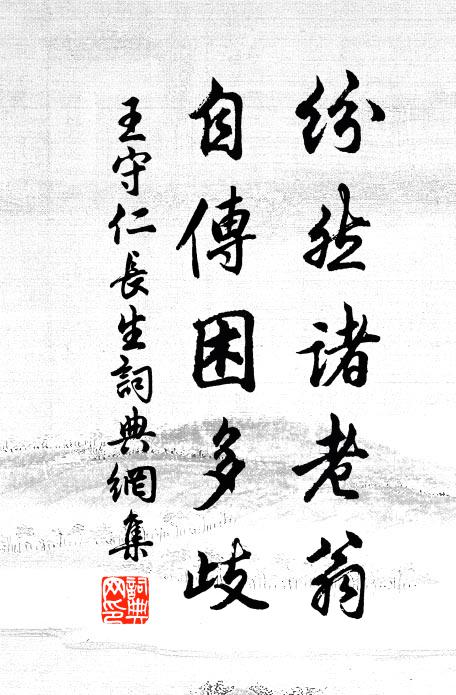 紛然諸老翁
自傳困多歧
王守仁長生詞典網集
詞典網印